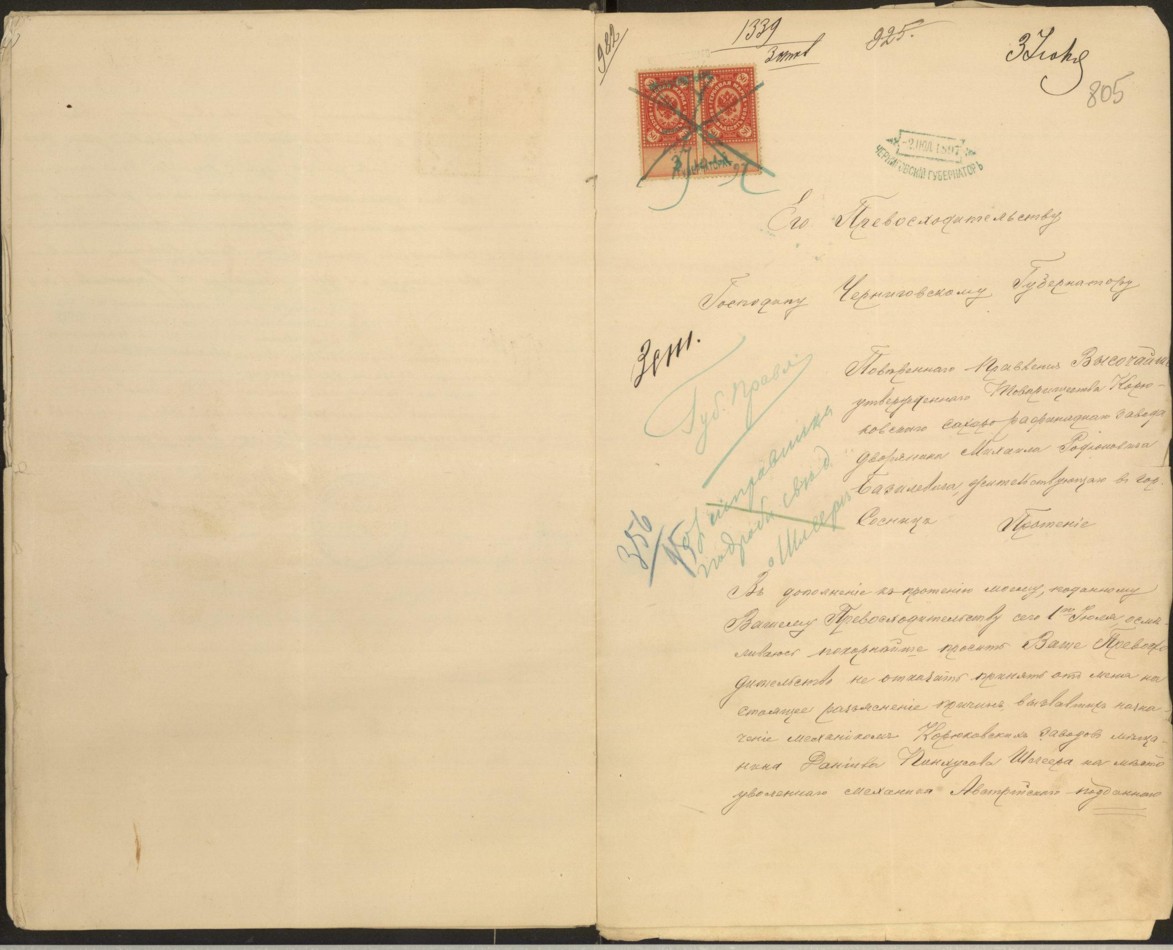 982
1339
3 июля
925.
3 Июля
805
-2 ІЮЛ. 1897
ЧЕРНИГОВСКІЙ ГУБЕРНАТОРЪ
3
97
Его Превосходительству
Господину Черниговскому Губернатору
Губ. Правл
исправника
подробн. свѣд.
о Шлеерѣ
356
Повѣреннаго Правленія Высочайше
утвержденнаго Товарищества Корю-
ковскаго сахаро-рафинаднаго завода
дворянина Михаила Родіоновича
Базилевича, жительствующаго въ гор.
Сосница Прошеніе
Въ дополненіе къ прошенію моему, поданному
Вашему Превосходительству сего 1го Іюля, осмѣ-
ливаюсь покорнѣйше просить Ваше Превосхо
дительство не отказать принять отъ меня на
стоящее разъясненіе причинъ, вызвавшихъ назна-
ченіе механикомъ Корюковскихъ заводовъ мѣща-
нина Пинхусова на мѣсто
уволеннаго механика Австрійскаго подданнаго